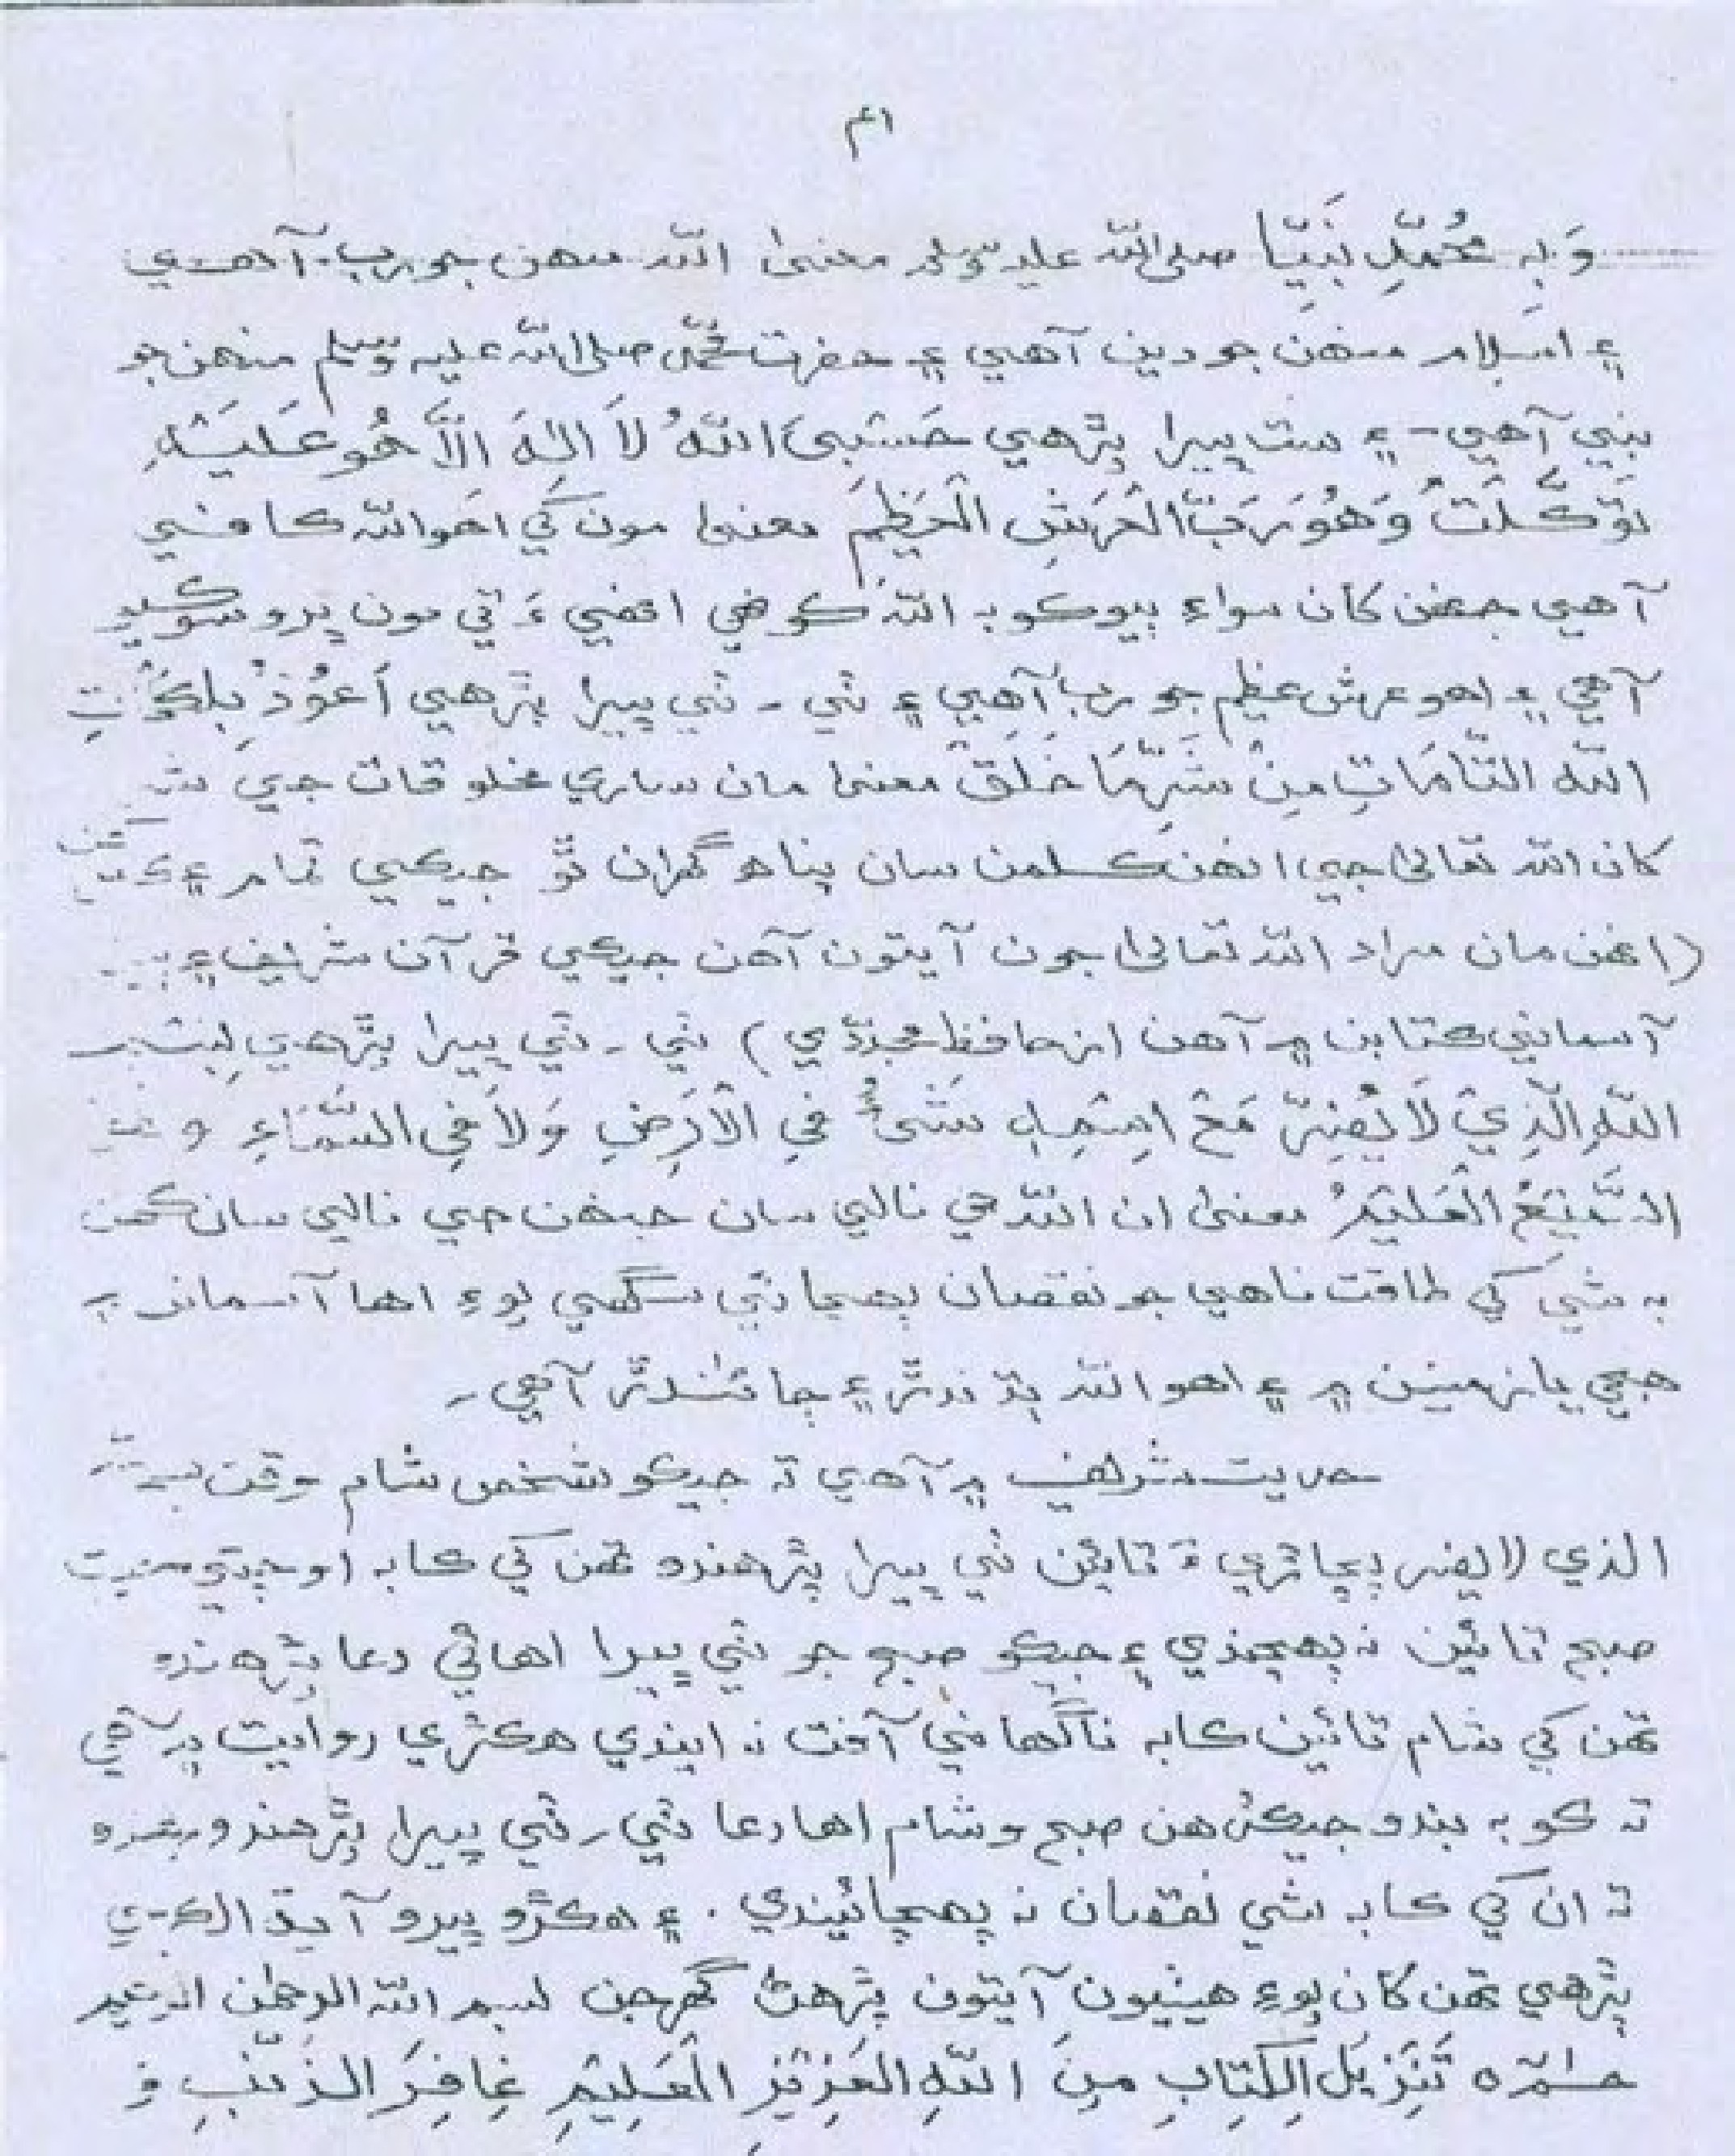 ۴۱
وَبِہ مُحَمَّدٍ نَبِیَّا صلی اللہ علیہ وسلم معنیٰ اللہ منهن جو رب آهي
۽ اسلام منهن جو دين آهي ۽ حضرت محمّد صلی اللہ علیہ وسلم منهن جو
نبي آهي - ۽ ست ڀيرا پڙهي حَسْبِیَ اللہُ لاَ اِلٰهَ اِلاَّ هُو عَلَیْهِ
تَوَکَّلْتُ وَهُوَ رَبُّ الْعَرْشِ الْعَظِیْمِ معنیٰ مون کي اهو اللہ کافي
آهي جنهن کان سواءِ ٻيو ڪو بہ اللہ ڪونهي انهيءَ تي مون ڀروسو ڪيو
آهي ۽ اهو عرش عظيم جو رب آهي ۽ ٽي - ٽي ڀيرا پڙهي اَعُوْذُ بِکَلِمَاتِ
اللہِ التَّامَّاتِ مِنْ شَرِّمَا خَلَقَ معنیٰ مان ساري مخلوقات جي
کان اللہ تعالیٰ جي انهن ڪلمن سان پناهہ گهران ٿو جيڪي تمام ۽
(انهن مان مراد اللہ تعالیٰ جون آيتون آهن جيڪي قرآن شريف ۽
آسماني ڪتابن ۾ آهن از حافظ مجددي) ٽي - ٽي ڀيرا پڙهي بِسْمِ
اللہِ الَّذِيْ لاَ يَضُرُّ مَعَ اسْمِهِ شَیْءٌ فِي الْاَرْضِ وَلاَ فِي السَّمَاءِ وهو
السَّمِیْعُ الْعَلِیْمُ معنیٰ ان اللہ جي نالي سان جنهن جي نالي سان ڪنهن
بہ شيءِ کي طاقت ناهي جو نقصان پهچائي سگهي پوءِ اها آسمان ۾
هجي يا زمين ۾ ۽ اهو اللہ ٻڌندڙ ۽ ڄاڻندڙ آهي -
حديث شريف ۾ آهي تہ جيڪو شخص شام وقت بسم اللہ
الذي لا يضر پڇاڙي تائين ٽي ڀيرا پڙهندو تنهن کي ڪابہ اوچتي مصيبت
صبح تائين نہ پهچندي ۽ جيڪو صبح جو ٽي ڀيرا اهائي دعا پڙهندو
تنهن کي شام تائين ڪابہ ناگهاني آفت نہ ايندي هڪڙي روايت ۾ آهي
تہ ڪوبہ بندو جيڪڏهن صبح و شام اها دعا ٽي - ٽي ڀيرا پڙهندو رهندو
تہ ان کي ڪابہ شيءِ نقصان نہ پهچائيندي . ۽ هڪڙو ڀيرو آية الکرسي
پڙهي تنهن کان پوءِ هيٺيون آيتون پڙهڻ گهرجن بسم اللہ الرحمٰن الرحيم
حٰمٓ ه تَنْزِیْلُ الْکِتٰبِ مِنَ اللہِ الْعَزِیْزِ الْعَلِیْمِ غَافِرِ الذَّنْبِ وَ